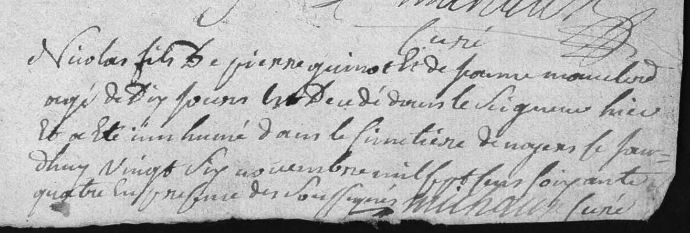 Curé
Nicolas fils de pierre quinot et de jeanne mauclerd
agé de Dix jours est Decedé dans le Seigneur hier
Et a Eté innhumé dans le Cimetière de noyers ce jour=
dhuy vingt Six novembre mil sept cens soixante
quatre En presence des Soussignés Curé